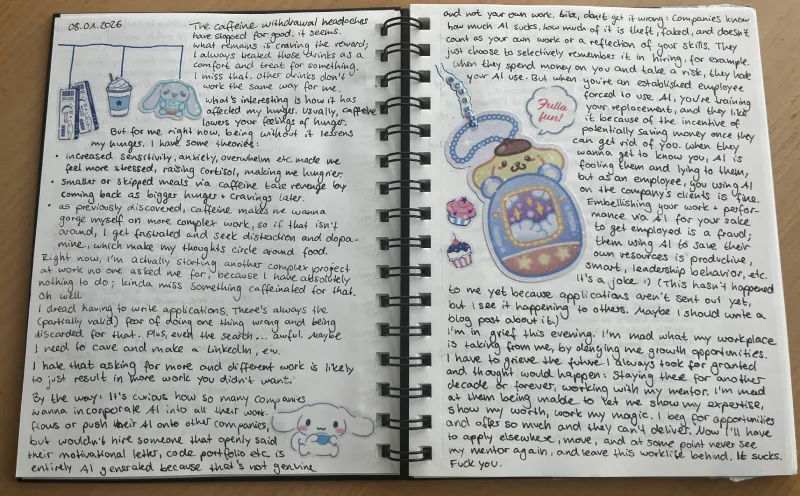 08.01.2026
The caffeine withdrawal headaches
have stopped for good, it seems.
what remains is craving the reward;
I always treated those drinks as a
comfort and treat for something.
I miss that. Other drinks don't
work the same way for me.
what's interesting is how it has
affected my hunger. Usually, caffeine
lowers your feelings of hunger.
But for me right now, being without it lessens
my hunger. I have some theories:
• increased sensitivity, anxiety, overwhelm etc. made me
feel more stressed, raising cortisol, making me hungrier.
• smaller or skipped meals via caffeine take revenge by
coming back as bigger hunger + cravings later.
• as previously discovered, caffeine makes me wanna
gorge myself on more complex work, so if that isn't
around, I get frustrated and seek distraction and dopa-
mine, which make my thoughts circle around food.
Right now, I'm actually starting another complex project
at work no one asked me for, because I have absolutely
nothing to do; kinda miss something caffeinated for that.
Oh well.
I dread having to write applications. There's always the
(partially valid) fear of doing one thing wrong and being
discarded for that. Plus, even the search... awful. Maybe
I need to cave and make a LinkedIn, ew.
I hate that asking for more and different work is likely
to just result in more work you didn't want.
By the way: It's curious how so many companies
wanna incorporate AI into all their work
flows or push their AI onto other companies,
but wouldn't hire someone that openly said
their motivational letter, code portfolio etc. is
entirely AI generated because that's not genuine
and not your own work. Like, don't get it wrong: Companies know
how much AI sucks, how much of it is theft, faked, and doesn't
count as your own work or a reflection of your skills. They
just choose to selectively remember it in hiring, for example.
When they spend money on you and take a risk, they hate
your AI use. But when you're an established employee
forced to use AI, you're training
your replacement, and they like
it because of the incentive of
potentially saving money once they
can get rid of you. When they
wanna get to know you, AI is
fooling them and lying to them,
but as an employee, you using AI
on the company's clients is fine.
Embellishing your work + perfor-
mance via AI for your sake
to get employed is a fraud;
them using AI to save their
own resources is productive,
smart, leadership behavior, etc.
It's a joke :) (This hasn't happened
to me yet because applications aren't sent out yet,
but I see it happening to others. Maybe I should write a
blog post about it.)
I'm in grief this evening. I'm mad what my workplace
is taking from me, by denying me growth opportunities.
I have to grieve the future I always took for granted
and thought would happen: Staying there for another
decade or forever, working with my mentor. I'm mad
at them being unable to let me show my expertise,
show my worth, work my magic. I beg for opportunities
and offer so much and they can't deliver. Now I'll have
to apply elsewhere, move, and at some point never see
my mentor again, and leave this worklife behind. It sucks.
Fuck you.
Fulla
fun!